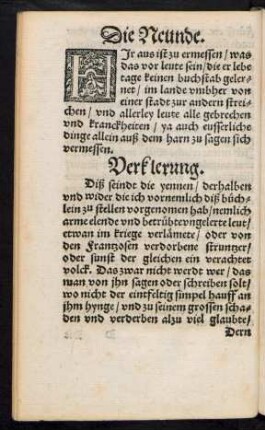 Die Neunde.
HIr aus ist zu ermessen / was
das vor leute sein / die er lebe
tage keinen buchstab geler-
net / im lande vmbher von
einer stadt zur andern strei-
chen / vnd allerley leute alle gebrechen
vnd kranckheiten / ya auch eusserliche
dinge allein auß dem harn zu sagen sich
vermessen.
Verklerung.
Diß seindt die yennen / derhalben
vnd wider die ich vornemlich diß büch-
lein zu stellen vorgenomen hab / nemlich
arme elende vnd betrübte vngelerte leut /
etwan im kriege verlämete / oder von
den Frantzosen verdorbene struntzer /
oder sunst der gleichen ein verachtet
volck. Das zwar nicht werdt wer / das
man von jhn sagen oder schreiben solt /
wo nicht der eintfeltig simpel hauff an
jhm hynge / vnd zu seinem grossen scha-
den vnd verderben alzu viel glaubte /
Dern